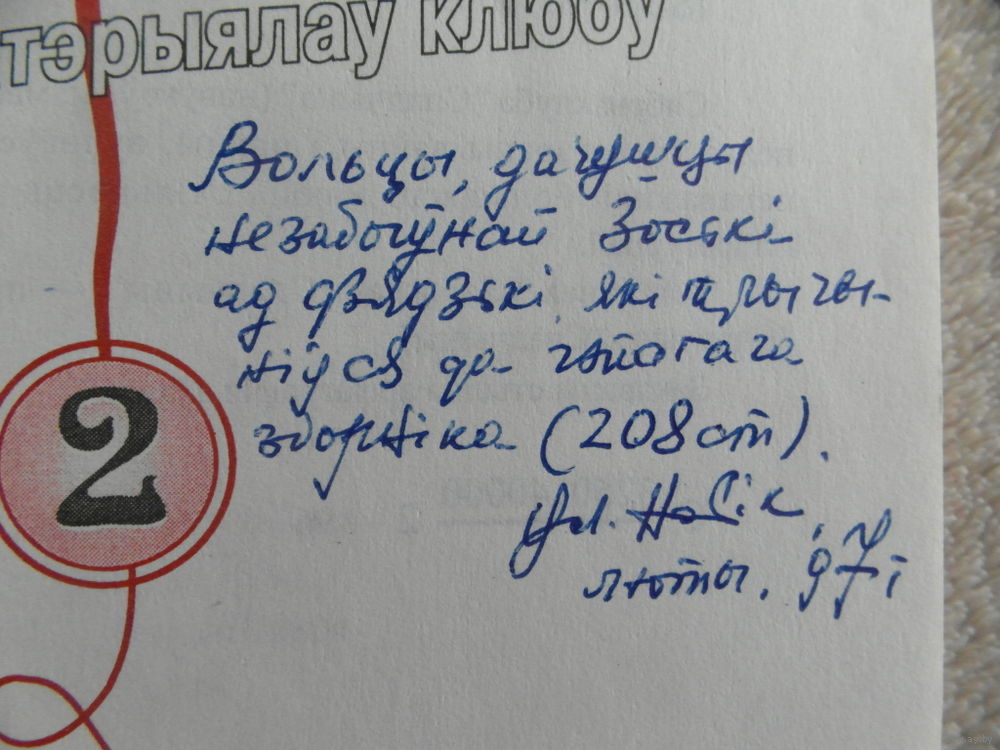 тэрыялаў клюбу
Вольцы, дачушцы
незабыўнай Зоські
ад дзядзькі, які прычы-
ніўся да гэтага
зборніка (208 ст).
Ул.
люты, 97 г
2